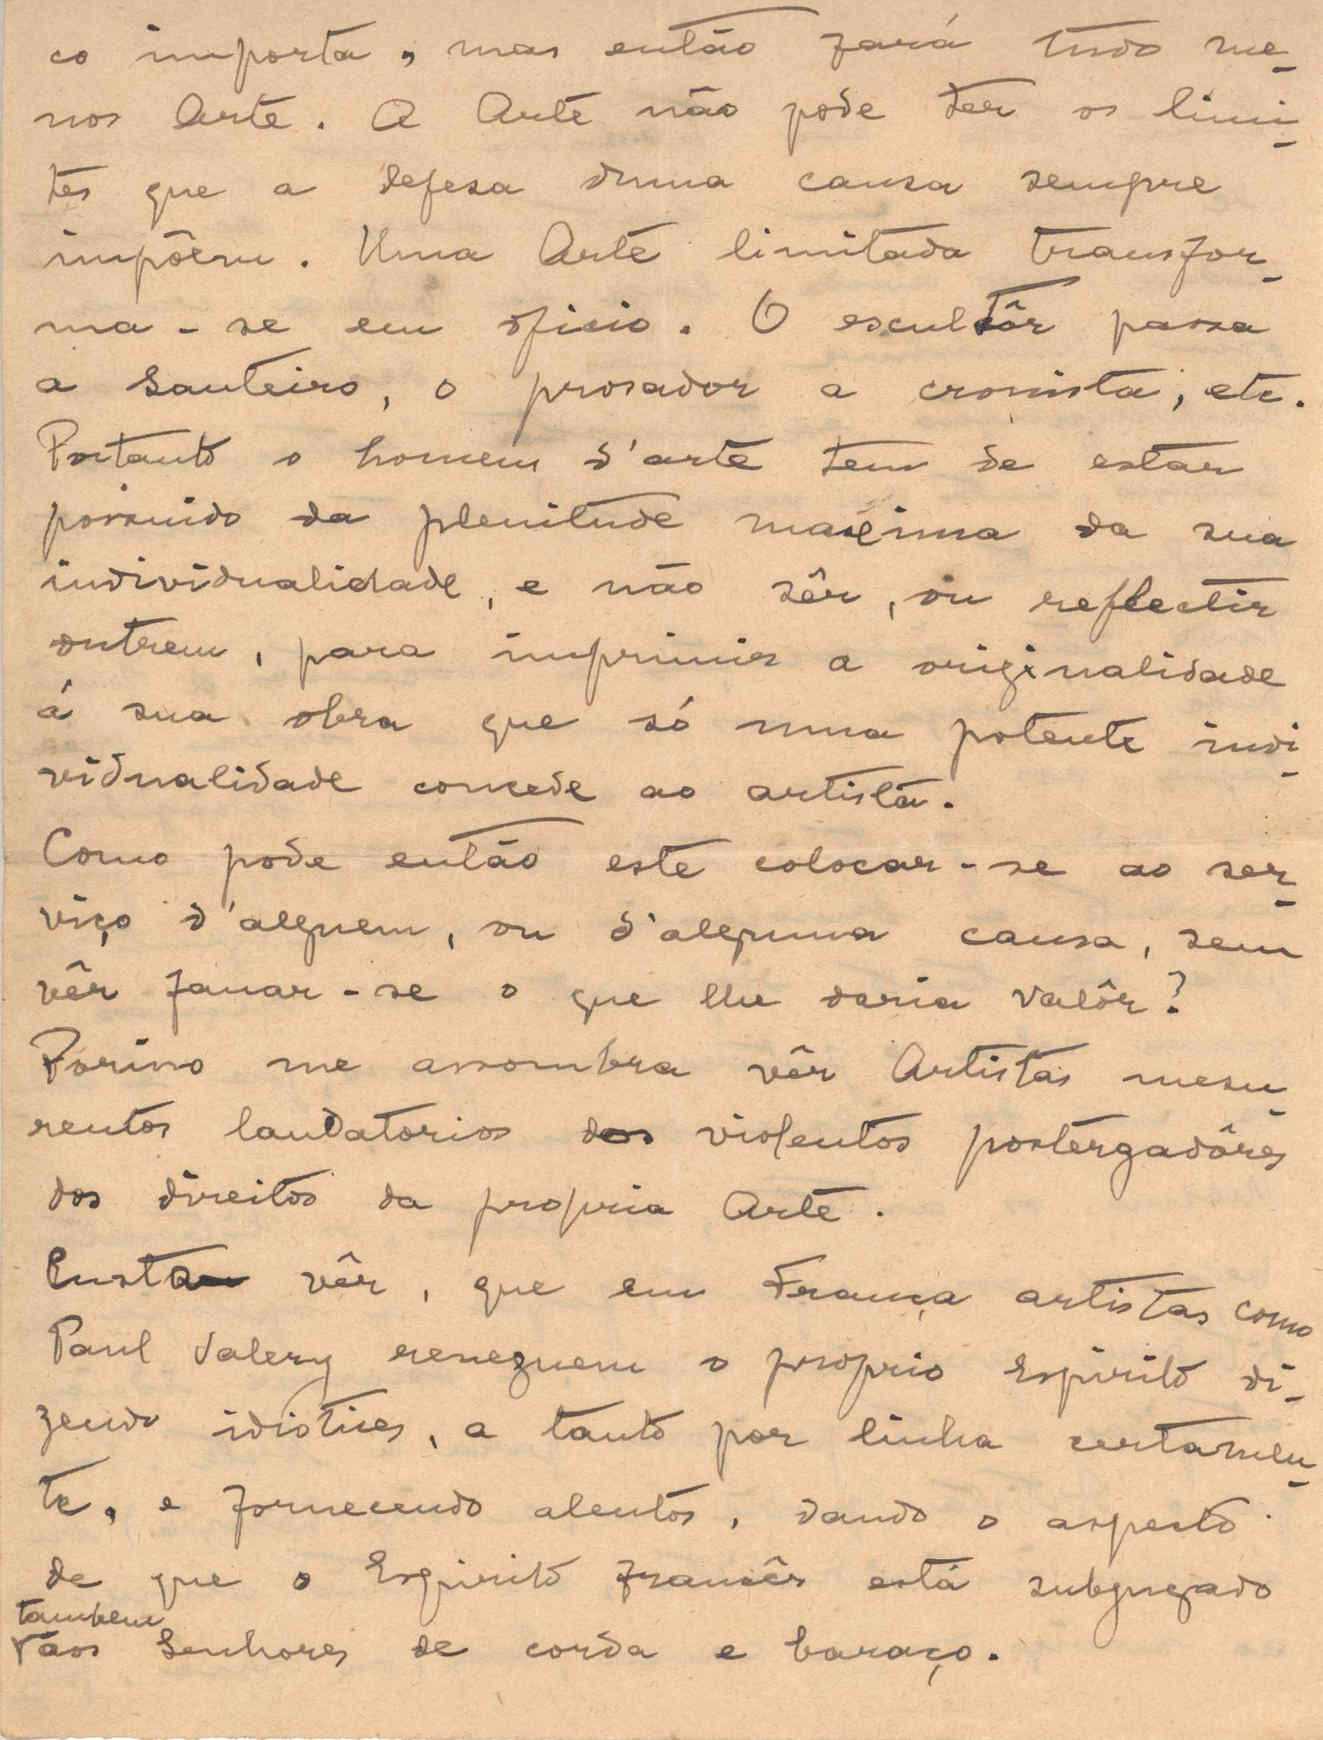 co importa, mas então fará tudo me-
nos Arte. A Arte não pode ter os limi-
tes que a defesa duma causa sempre
impôem. Uma Arte limitada transfor-
ma-se em oficio. O escultôr passa
a Santeiro, o prosador a cronista, etc.
Portanto o homem d'arte tem de estar
possuido da plenitude maxima da sua
individualidade, e não sêr, ou reflectir
outrem, para imprimir a originalidade
á sua obra que só uma potente indi-
vidualidade concede ao artista.
Como pode então este colocar-se ao ser-
viço d'alguem, ou d'alguma causa, sem
vêr fanar-se o que lhe daria valôr?
Por isso me assombra vêr Artistas mesu-
rentos laudatorios dos violentos postergadôres
dos direitos da propria Arte.
Custa vêr, que em França artistas como
Paul Valery reneguem o proprio Espirito di-
zendo idiotices, a tanto por linha certamen-
te, e fornecendo alentos, dando o aspecto
de que o Espirito francês está subjugado
tambem
aos Senhores de corda e baraço.